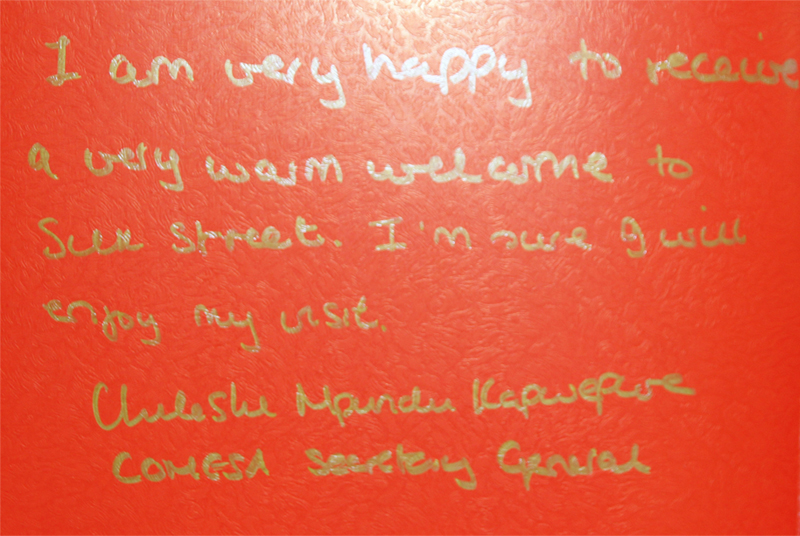 I am very happy to receive
a very warm welcome to
Silk Street. I'm sure I will
enjoy my visit.
Chileshe Mpundu Kapwepwe
COMESA Secretary General